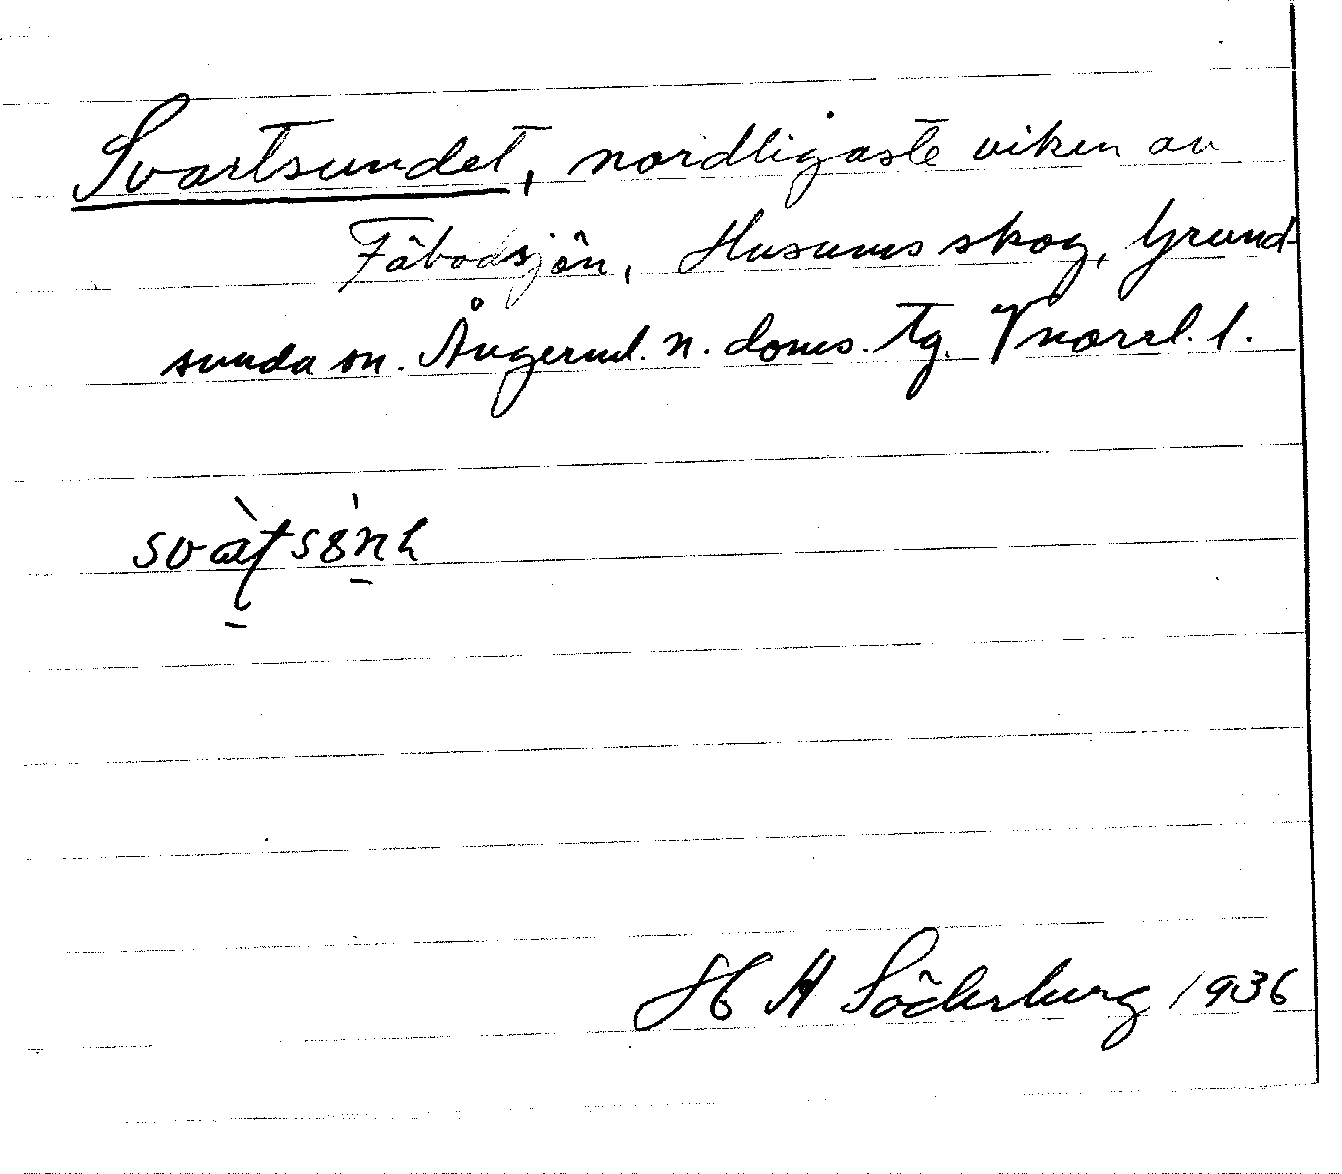 Svartsundet, nordligaste viken av
Fäbodsjön, Husums skog, Grund-
sunda sn. Ångerml. n. doms. tg. Vnorrl. l.
H A Söderberg 1936